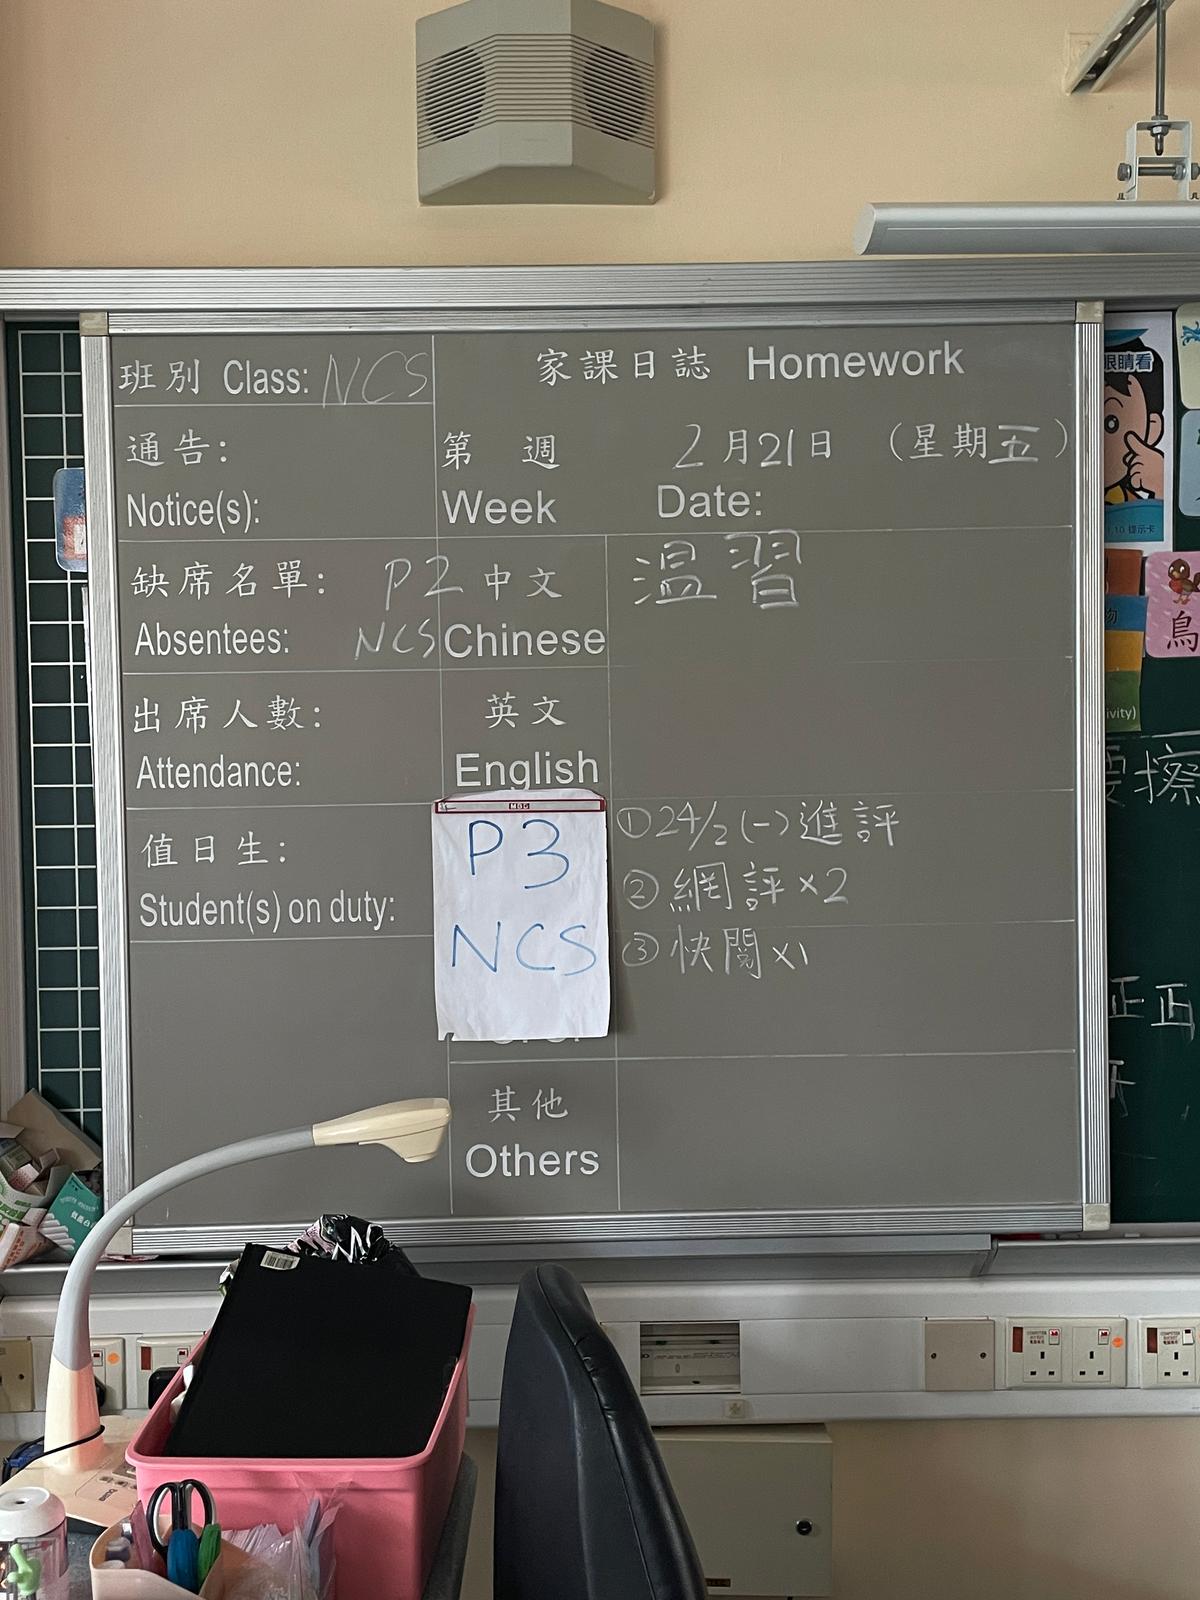 班別 Class: NCS
家課日誌 Homework
通告:
Notice(s):
第 週 2月21日 (星期五)
Week Date:
缺席名單: P2
Absentees: NCS
中文 温習
Chinese
出席人數:
Attendance:
英文
English
值日生:
Student(s) on duty:
MDG
P3
NCS
①24/2(一)進評
②網評×2
③快閱×1
其他
Others
眼睛看
提示卡
鳥
物
ivity)
擦
正